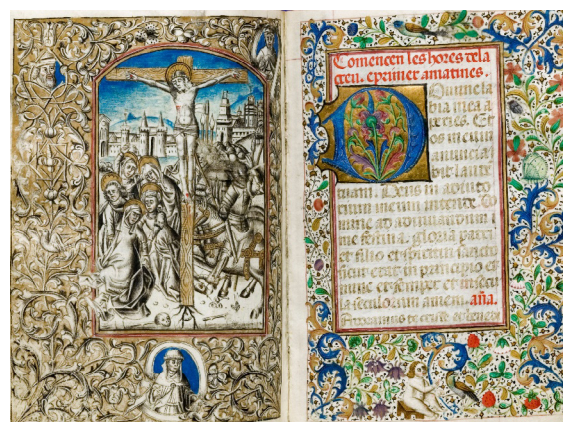 Comencen les hores dela
creu. e primer a matines.
Domine la
bia mea a
peries. Et
os meum
anuncia
bit laude
tuam Deus in adiuto
rium meum intende. Do
mine ad adiuuandum
me festina. gloria patri
et filio et spiritui sancto
sicut erat in principio et
nunc et semper et in secu
la seculorum amen. aña.